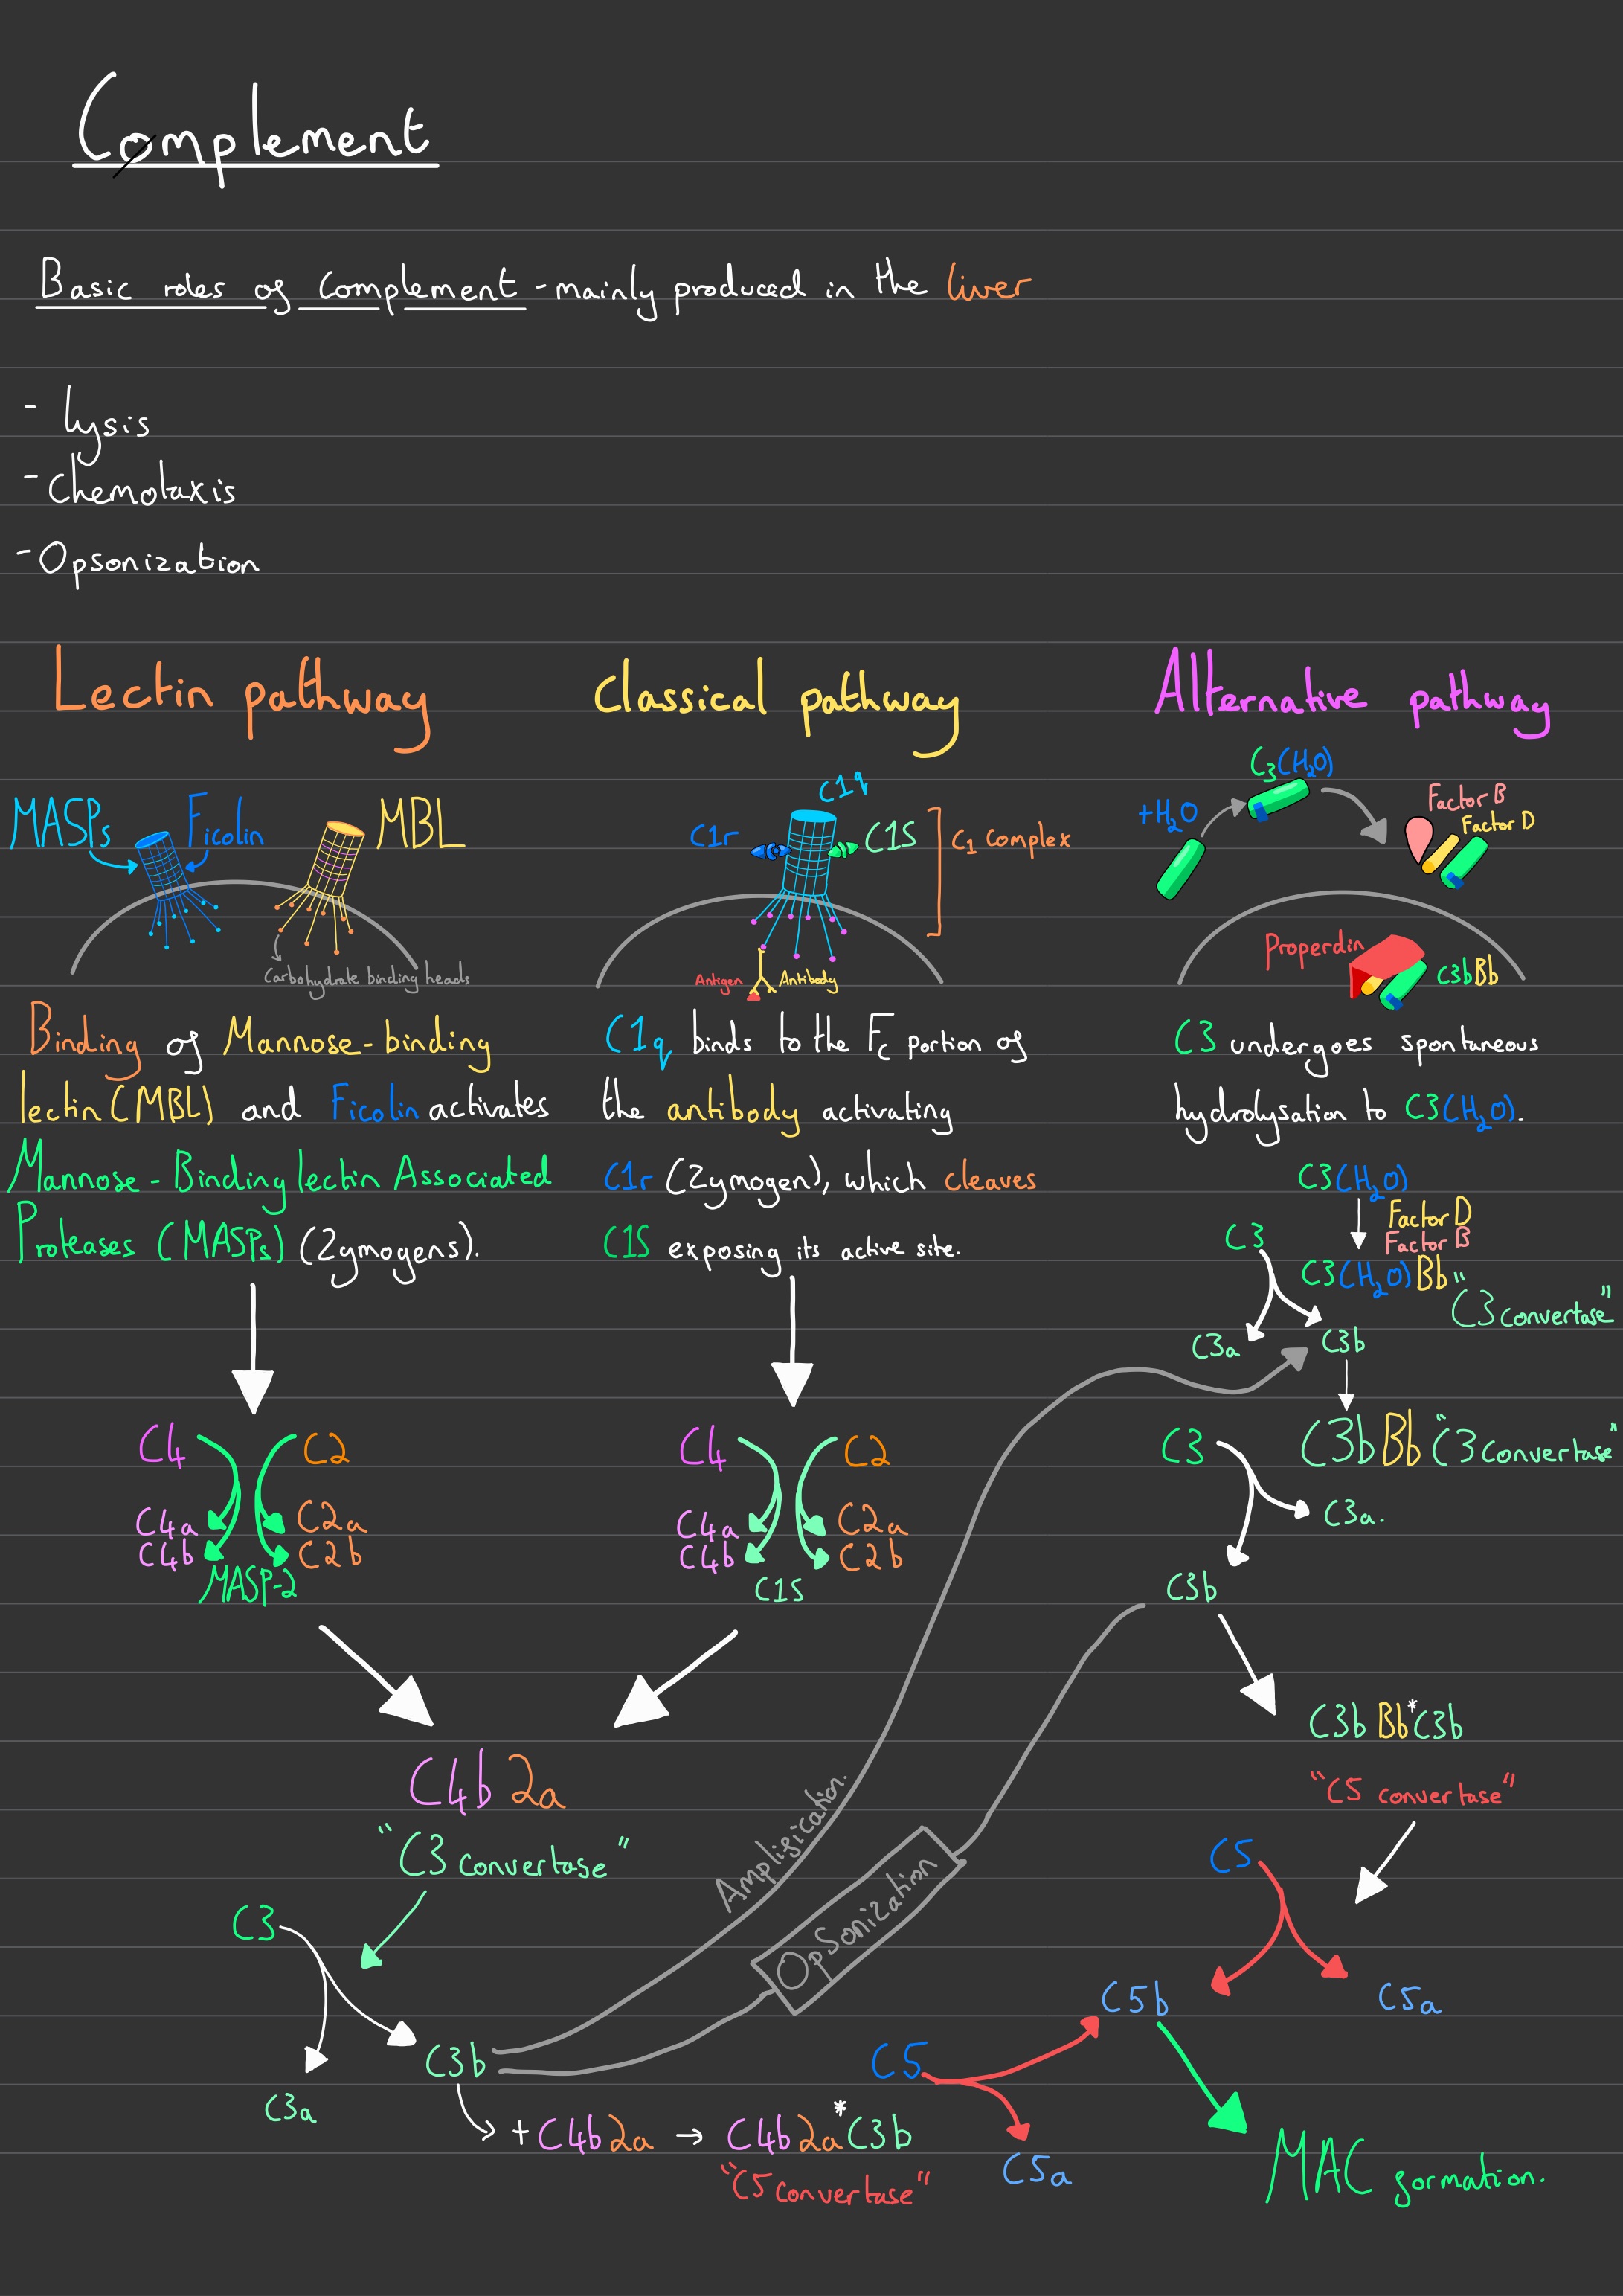 Complement
Basic roles of Complement - mainly produced in the liver
- Lysis
- Chemotaxis
- Opsonization
Lectin pathway
MASPs
Ficolin
MBL
Carbohydrate binding heads
Binding of Mannose-binding
lectin (MBL) and Ficolin activates
Mannose-Binding lectin Associated
Proteases (MASPs) (Zymogens).
C4
C2
C4a
C2a
C4b
C2b
MASP-2
Classical pathway
C1q
C1r
C1S
C1 Complex
Antigen
Antibody
C1q binds to the Fc portion of
the antibody activating
C1r (Zymogen), which cleaves
C1S exposing its active site.
C4
C2
C4a
C2a
C4b
C2b
C1S
C4b2a
"C3 convertase"
C3
C3a
C3b
+ C4b2a → C4b2a*C3b
"C5 convertase"
Amplification.
Opsonization
Alternative pathway
C3(H2O)
+H2O
Factor B
Factor D
Properdin
C3bBb
C3 undergoes spontaneous
hydrolysation to C3(H2O).
C3(H2O)
Factor D
Factor B
C3
C3(H2O)Bb "C3 convertase"
C3a
C3b
C3
C3bBb "C3 convertase"
C3a.
C3b
C3bBb*C3b
"C5 convertase"
C5
C5b
C5a
C5
C5a
MAC formation.